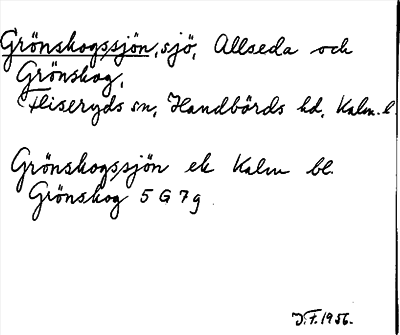 Grönskogssjön, sjö, Allseda och
Grönskog,
Fliseryds sn, Handbörds hd, Kalm. l.
Grönskogssjön ek Kalm bl.
Grönskog 5 G 7 g
J.F. 1956.